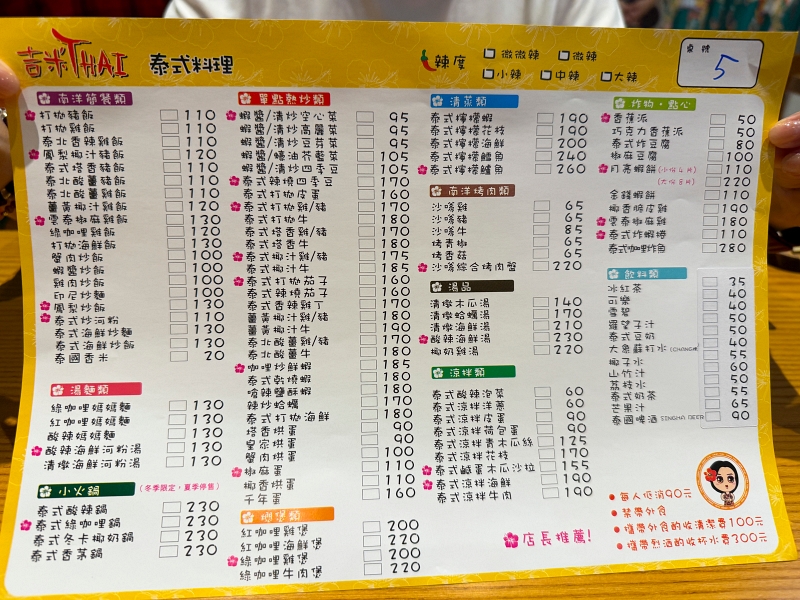 吉米THAI 泰式料理
辣度 微微辣 微辣
小辣 中辣 大辣
桌號
5
南洋簡餐類
打拋豬飯 110
打拋雞飯 110
泰北香辣雞飯 110
鳳梨椰汁豬飯 120
泰式塔香豬飯 110
泰北酸薑豬飯 110
泰北酸薑雞飯 110
薑黃椰汁雞飯 120
雲泰椒麻雞飯 130
綠咖哩雞飯 120
打拋海鮮飯 130
蟹肉炒飯 100
蝦醬炒飯 100
雞肉炒飯 100
印尼炒麵 100
鳳梨炒飯 130
泰式炒河粉 110
泰式海鮮炒麵 130
泰式海鮮炒飯 130
泰國香米 20
湯麵類
綠咖哩媽媽麵 130
紅咖哩媽媽麵 130
酸辣媽媽麵 130
酸辣海鮮河粉湯 130
清燉海鮮河粉湯 130
小火鍋 (冬季限定,夏季停售)
泰式酸辣鍋 230
泰式綠咖哩鍋 230
泰式冬卡椰奶鍋 230
泰式香茅鍋 230
單點熱炒類
蝦醬/清炒空心菜 95
蝦醬/清炒高麗菜 95
蝦醬/清炒豆芽菜 95
蝦醬/蠔油芥藍菜 105
蝦醬/清炒四季豆 105
泰式辣燒四季豆 170
泰式打拋皮蛋 160
泰式打拋雞/豬 170
泰式打拋牛 180
泰式塔香雞/豬 170
泰式塔香牛 180
泰式椰汁雞/豬 175
泰式椰汁牛 185
泰式打拋茄子 160
泰式辣燒茄子 160
泰式香辣雞丁 170
薑黃椰汁雞/豬 180
薑黃椰汁牛 190
泰北酸薑雞/豬 170
泰北酸薑牛 180
咖哩炒鮮蝦 185
泰式乾燒蝦 180
嗆辣鹽酥蝦 180
辣炒蛤蠣 170
泰式打拋海鮮 180
塔香烘蛋 90
皇宗烘蛋 90
蟹肉烘蛋 100
椒麻蛋 110
椰香烘蛋 110
千年蛋 160
煲類
紅咖哩雞煲 200
紅咖哩海鮮煲 220
綠咖哩雞煲 200
綠咖哩牛肉煲 220
清蒸類
泰式檸檬蝦 190
泰式檸檬花枝 190
泰式檸檬海鮮 200
泰式檸檬鱸魚 240
泰式檸檬鱸魚 260
南洋烤肉類
沙嗲雞 65
沙嗲豬 65
沙嗲牛 85
烤青椒 65
烤香菇 65
沙嗲綜合烤肉盤 220
湯品
清燉木瓜湯 140
清燉蛤蠣湯 170
清燉海鮮湯 210
酸辣海鮮湯 230
椰奶雞湯 220
涼拌類
泰式酸辣泡菜 60
泰式涼拌洋蔥 60
泰式涼拌皮蛋 90
泰式涼拌荷包蛋 90
泰式涼拌青木瓜絲 125
泰式涼拌花枝 170
泰式鹹蛋木瓜沙拉 155
泰式涼拌海鮮 190
泰式涼拌牛肉 190
店長推薦!
炸物·點心
香蕉派 50
巧克力香蕉派 50
泰式炸豆腐 80
椒麻豆腐 100
月亮蝦餅(小份4片) 110
(大份8片) 220
金錢蝦餅 110
椰香脆皮雞 190
雲泰椒麻雞 180
泰式炸蝦捲 110
泰式咖哩炸魚 280
飲料類
冰紅茶 35
可樂 40
雪碧 40
羅望子汁 50
泰式豆奶 50
大象蘇打水 (CHANG牌) 40
椰子水 55
山竹汁 60
荔枝水 50
泰式奶茶 55
芒果汁 65
泰國啤酒 SINGHA BEER 90
每人低消90元
禁帶外食
攜帶外食酌收清潔費100元
攜帶烈酒酌收杯水費300元